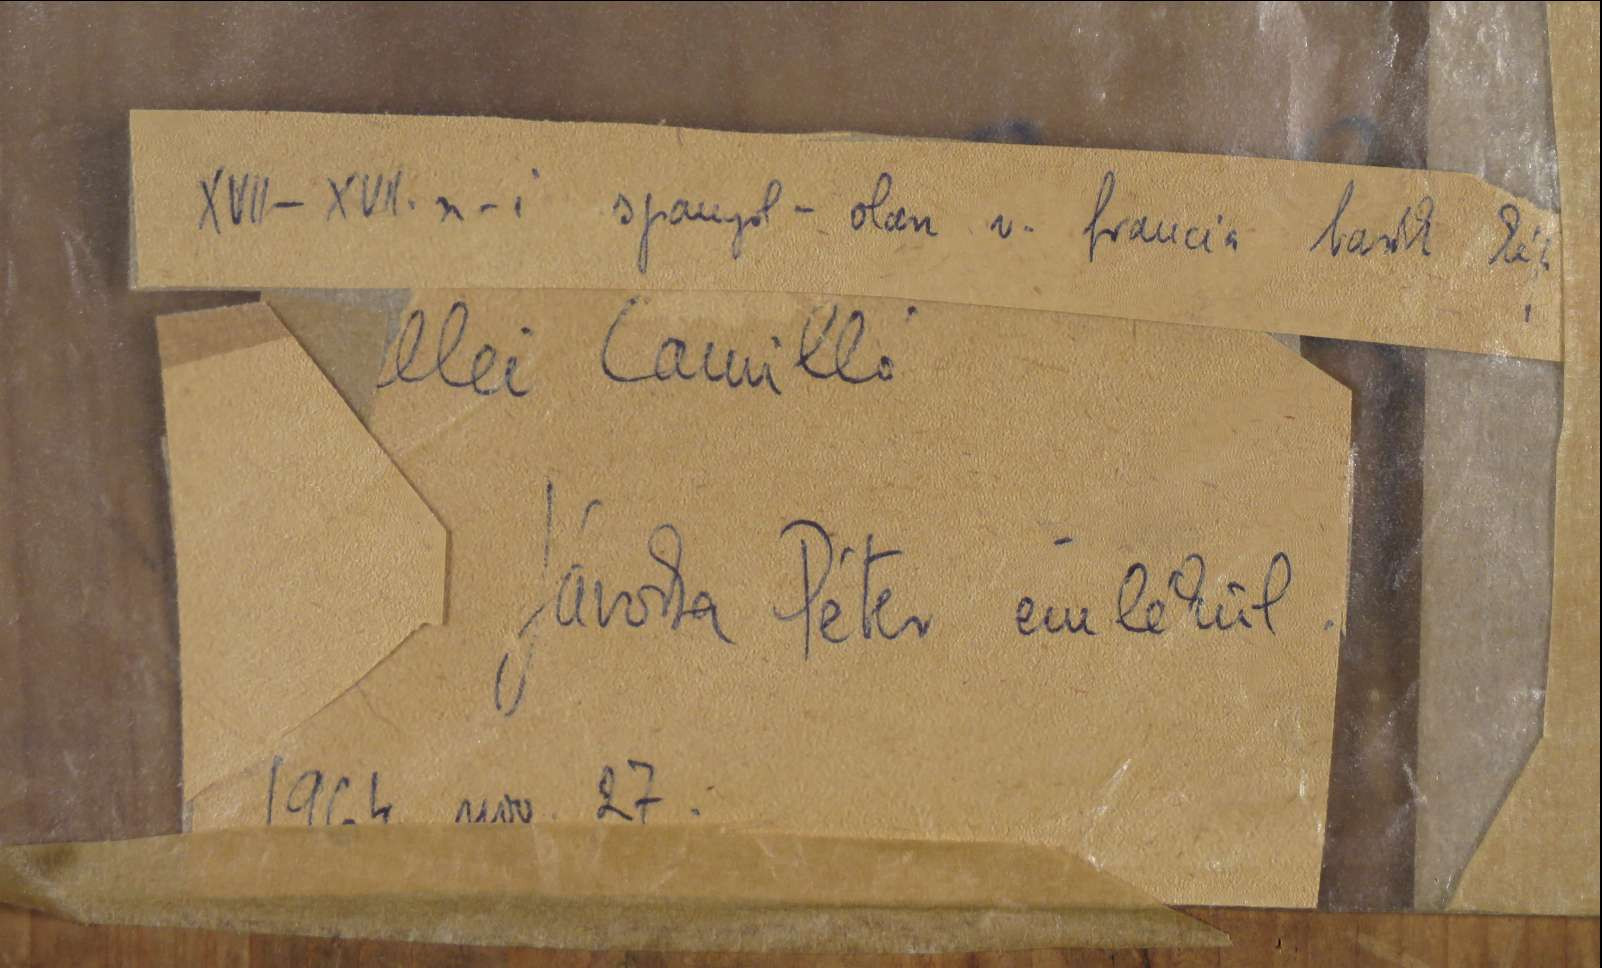 XVII-XVII. sz-i spanyol - olasz v. francia barokk kép
llei Camilló
Jávorka Péter emlékül.
1964 nov. 27.